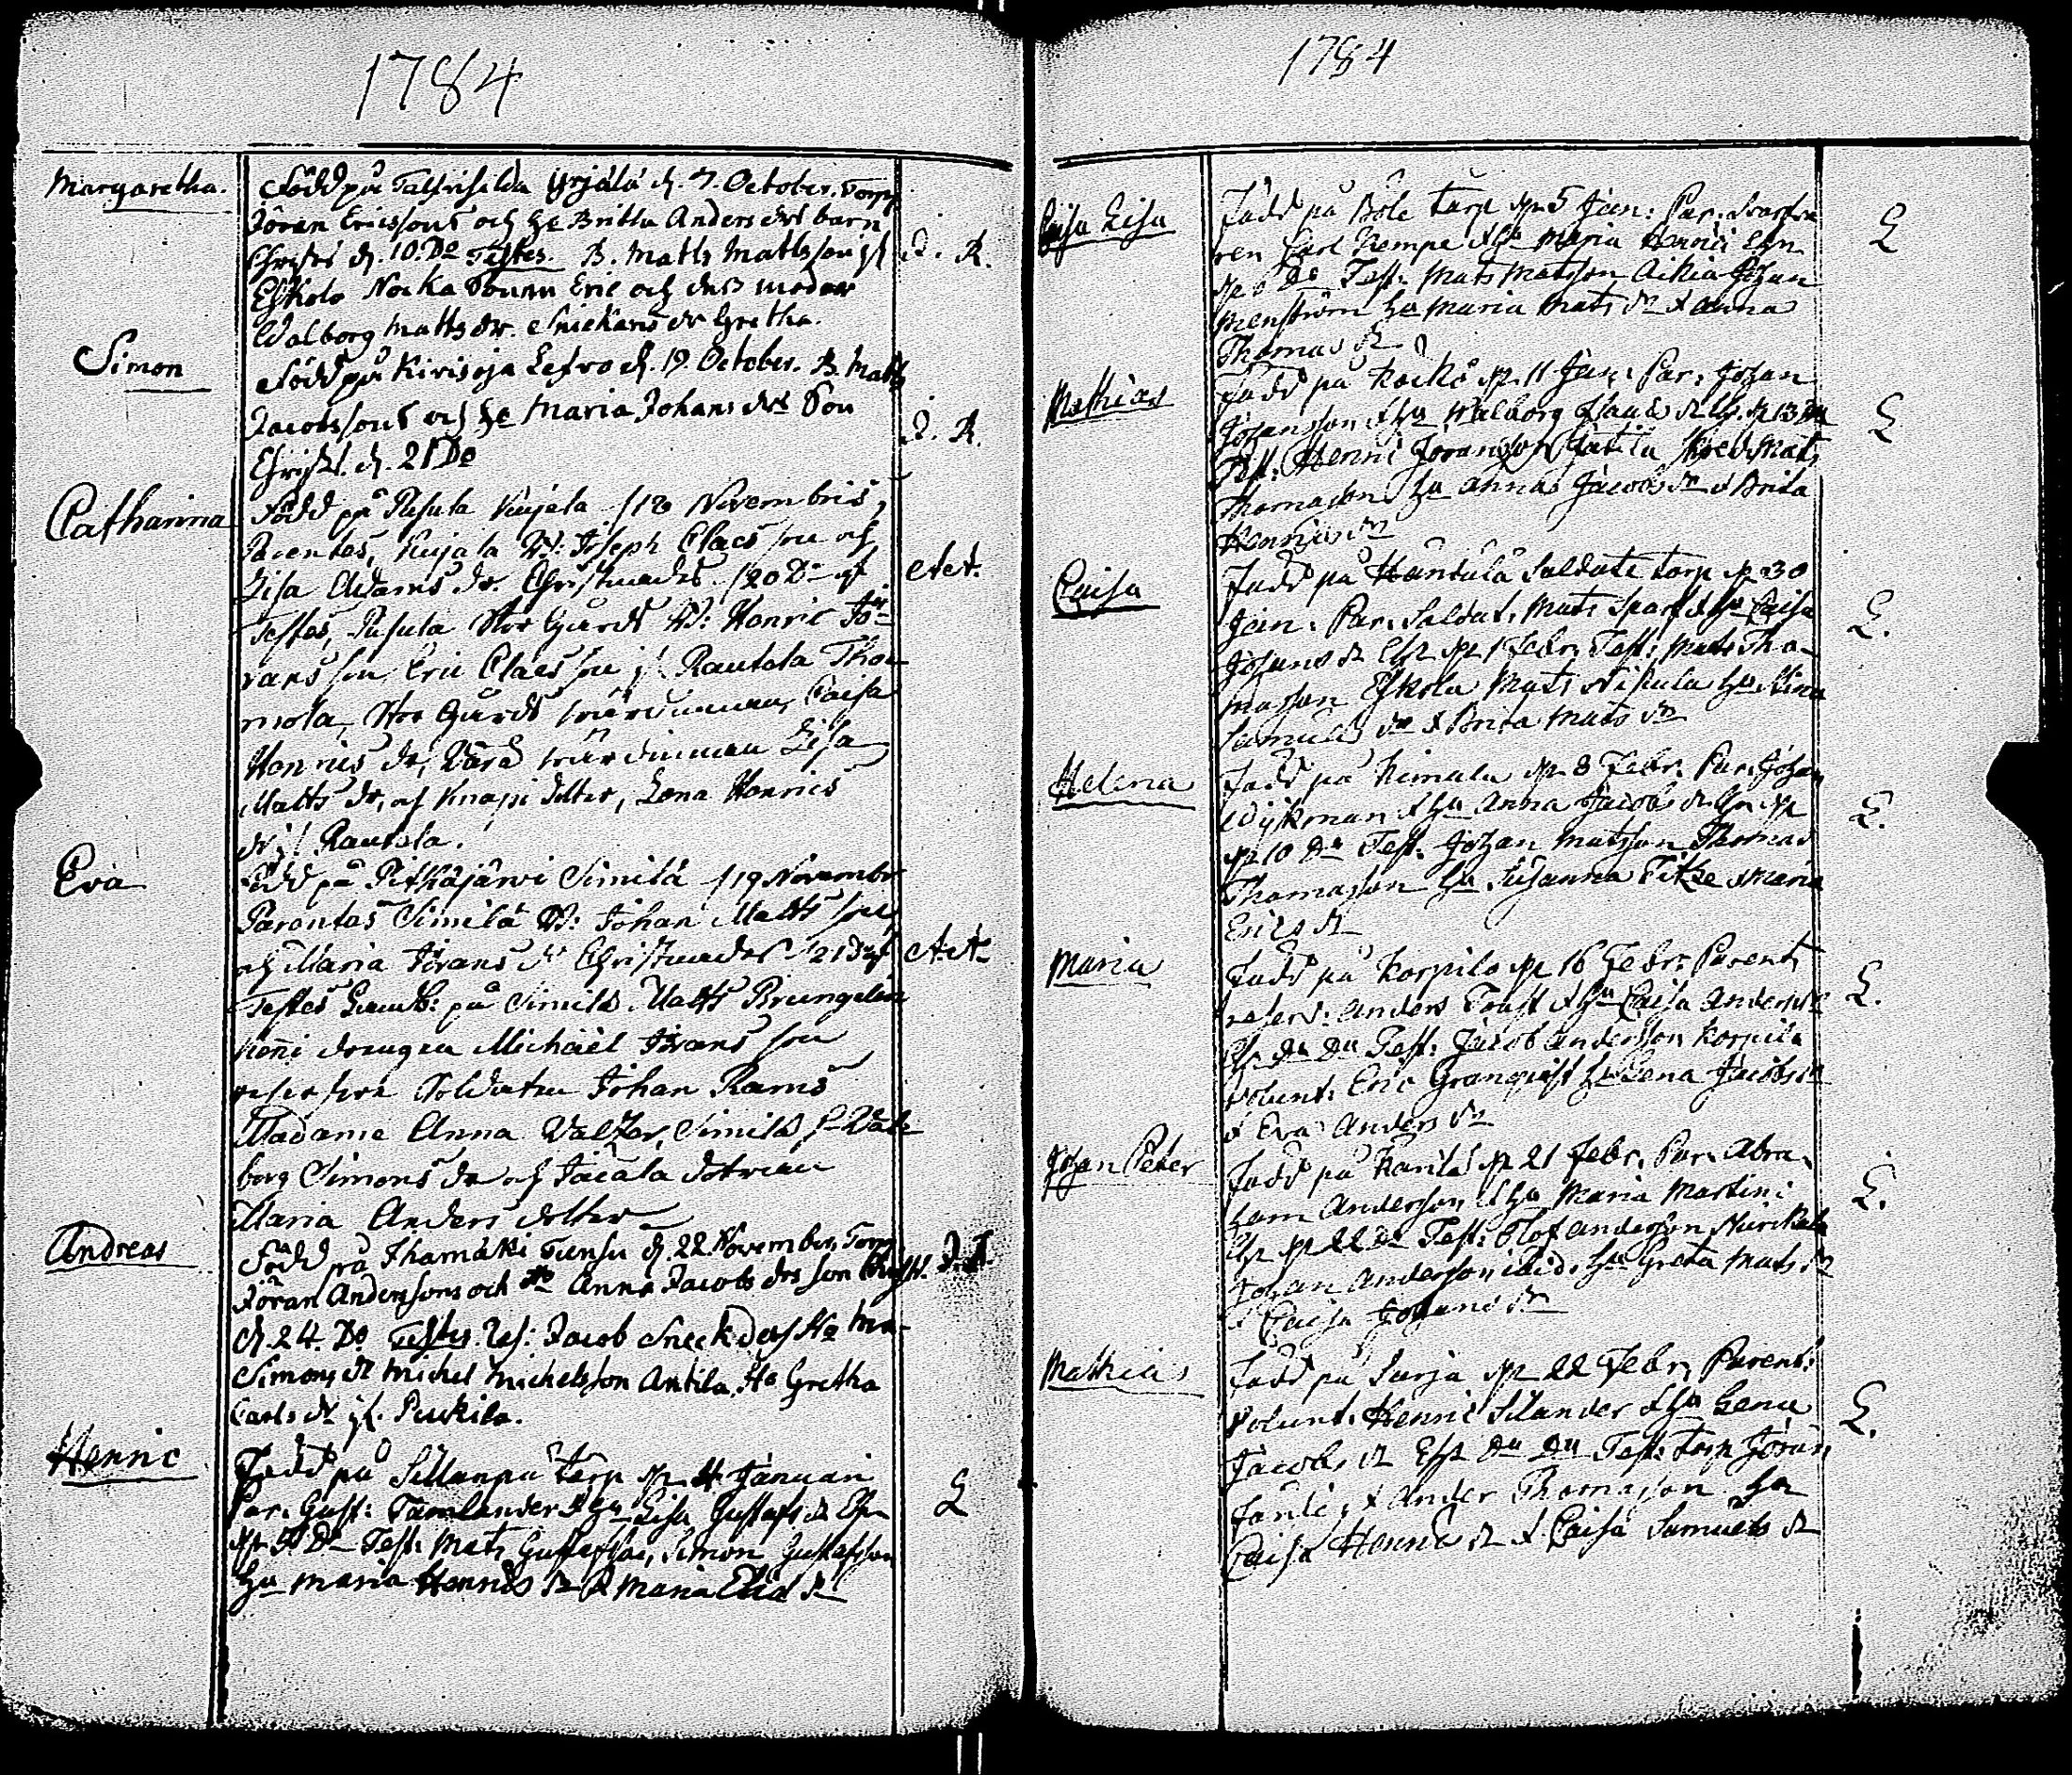 1784
Margaretha.
Född på Yrjälä d. 7. October. Torp
Jöran Ericssons och H:o Britta Anders drs barn
Christ d. 10. Do Testes. B. Matts Mattsson ifl
Eskola Nocka Sonen Eric och dess moder
Walborg Matts dr. Snickaris dr Gretha.
J. R.
Simon
Född på Kirisoja Lexvo d. 19. October. B. Matts
Jacobssons och H:o Maria Johans drs Son
Christ. d. 21 Do
J. R.
Catharina
Född på Pusula Kujala /18 Novembris,
Parentes, Kujala B: Joseph Claes son och
Lisa Adams dr. Christnades /20 D:o af
Testes, Pusula Stor Gårds B: Henric Jö-
rans son, Eric Claes son ifl Rautola Tho
mola, Stor Gårds wärdinnan, Caisa
Henrics dr, Wärd wärdinnan Lisa
Matts dr, af Knapi dotter, Lena Henrics
dr ifl Rautola.
Eva
Född på Pitkäjärvi Similä /19 Novembr
Parentes Similä B: Johan Matts son
och Maria Jörans dr Christnades /21 D:o af
Testes Landb: på Similä Matts
drengen Michaël Jörans son
Soldaten Johan Rams
Madame Anna Similä Wal-
borg Simons dr af Jäcälä dotren
Maria Anders dotter
Andreas
Född på Ihamäki Tunsu d. 22 November, Torp
Jöran Anderssons och H:o Anna Jacobs drs son Christ.
d. 24. Do Testes. Jacob H:o Ma-
Simons dr Michel Michelsson Antila, H:o Gretha
Carls dr ifl. Puckila.
J. J.
Henric
Född på Sillanpä torp d. 4 Januari
Par. Gust: Tamlander & Hu Lisa Gustafs dr Chr
d. D:o Test: Mats Gustafsson, Simon Gustafsson
Hu Maria Henrics dr & Maria Elia dr
L
1784
Caisa Lisa
Född på Böle torp d. 5 Jan: Par.
ren Carl Kempe & Hu Maria Henrici Chr
d. 6 D:o Test: Mats Matsson Aikia Johan
Menström Hu Maria Mats dr & Anna
Thomas dr
L
Mathias
Född på Kockå d. 11 Jan: Par: Johan
Johansson & Hu Walborg Clauds dr Chr. d. 13 D:o
Test: Henric Joransson Jätilä Mats
Thomasson Hu Annas Jacobs dr & Brita
Henrics dr
L
Caisa
Född på Hantula Soldate torp d. 30
Jan: Par: Soldat. Mats Sparf & Hu Caisa
Johans dr Chr d. 1 Febr. Test: Mats Tho-
masson Eskola Mats Nikula Hu Stina
Samuels dr & Brita Mats dr
L.
Helena
Född på Kimala d. 8 Febr. Par. Johan
Wijkman & Hu Anna Jacobs dr Chr d.
d. 10 D:o Test: Johan Matsson Thomas
Thomasson Hu Susanna Fikse & Maria
Erics dr
L.
Maria
Född på Korpila d. 16 Febr: Parent.
reserv: Anders Trast & Hu Caisa Anders dr
Chr D:o D:o Test: Jacob Andersson Korpila
Volunt: Eric Granqvist Hu Lena Jacobs dr
& Eva Anders dr
L.
Johan Peter
Född på Karila d. 21 Febr. Par. Abra-
ham Andersson & Hu Maria Martini
Chr d. 22 D:o Test: Olof Andersson
Johan Andersson ibid. Hu Greta Mats dr
& Caisa Johans dr
L.
Mathias
Född på Surja d. 22 Febr. Parent:
Volunt: Henric Silander & Hu Lena
Jacobs dr Chr D:o D:o Test: Torp Jöran
& Ander Thomasson Hu
Caisa Henric dr & Caisa Samuels dr
L.